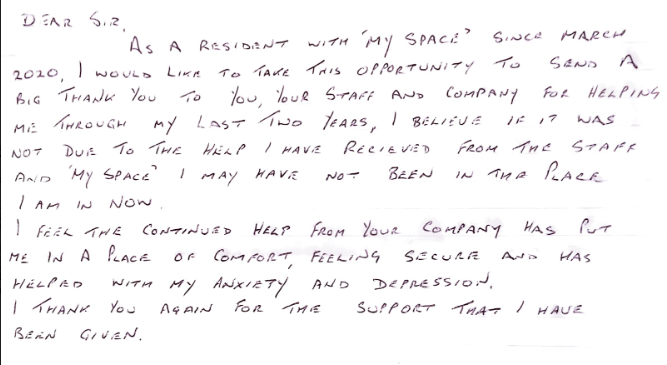 DEAR SIR,
AS A RESIDENT WITH 'MY SPACE' SINCE MARCH
2020, I WOULD LIKE TO TAKE THIS OPPORTUNITY TO SEND A
BIG THANK YOU TO YOU, YOUR STAFF AND COMPANY FOR HELPING
ME THROUGH MY LAST TWO YEARS, I BELIEVE IF IT WAS
NOT DUE TO THE HELP I HAVE RECIEVED FROM THE STAFF
AND 'MY SPACE' I MAY HAVE NOT BEEN IN THE PLACE
I AM IN NOW.
I FEEL THE CONTINUED HELP FROM YOUR COMPANY HAS PUT
ME IN A PLACE OF COMFORT, FEELING SECURE AND HAS
HELPED WITH MY ANXIETY AND DEPRESSION.
I THANK YOU AGAIN FOR THE SUPPORT THAT I HAVE
BEEN GIVEN.